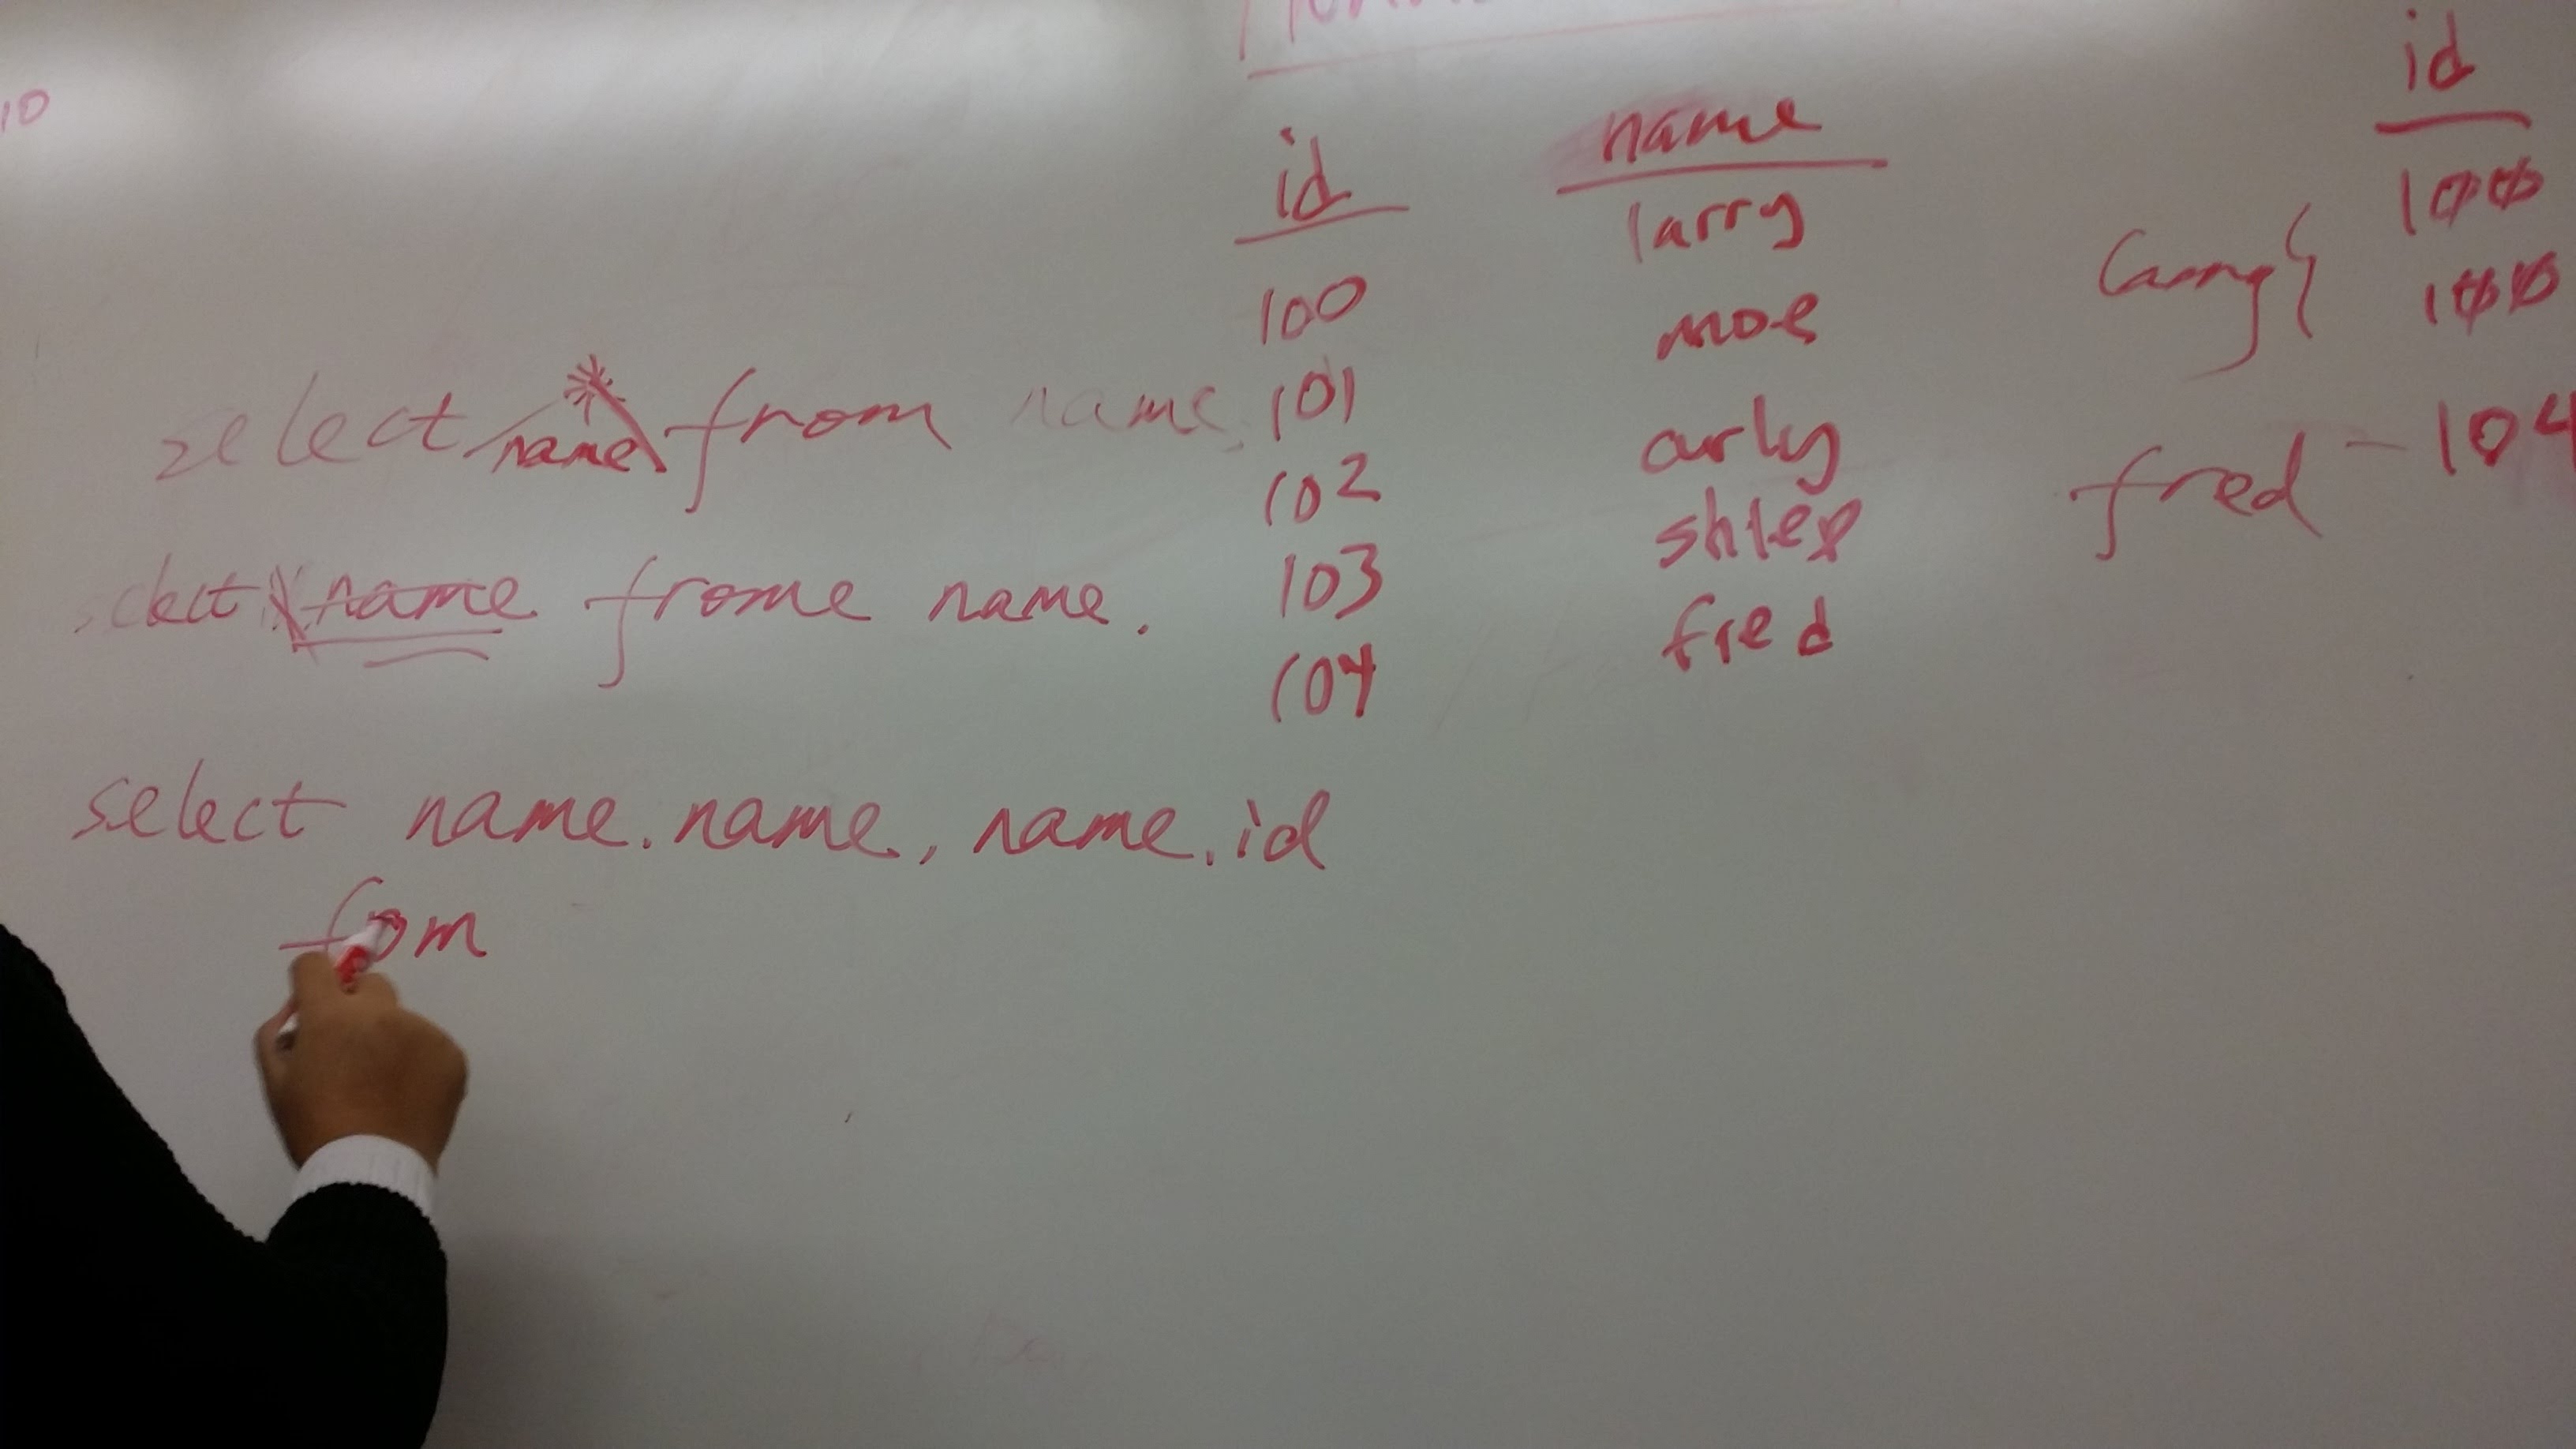 10
id
name
id
100
larry
100
moe
larry {
100
select * name from name
101
curly
fred - 104
102
shlep
select name frome name.
103
fred
104
select name.name, name.id
from